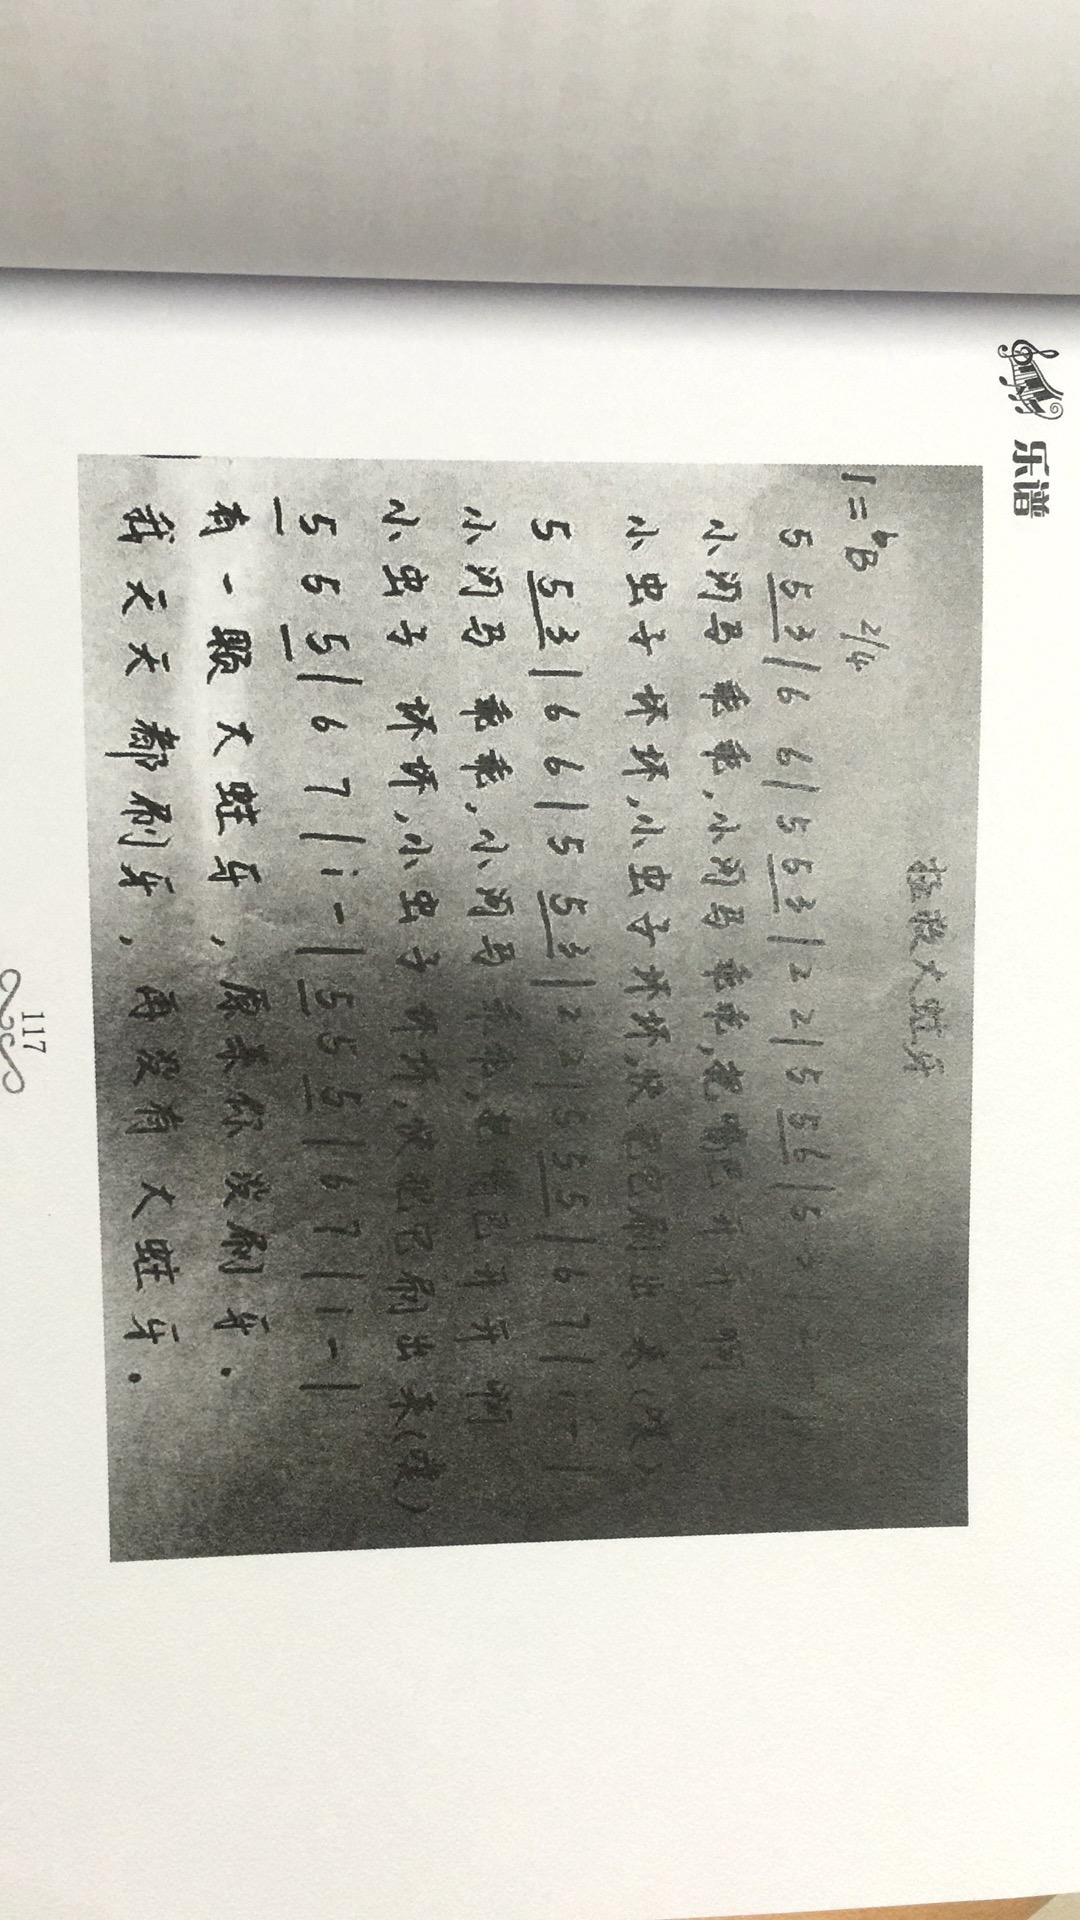 乐谱
拯救大蛀牙
1=ᵇB 2/4
5 5 3 | 6 6 | 5 5 3 | 2 2 | 5 5 6 | 5 3 | 2
小河马 乖乖,小河马 乖乖,把嘴巴 开 开 啊
小虫子 坏坏,小虫子 坏坏,快把它刷出 来
5 5 3 | 6 6 | 5 5 3 | 2 2 | 5 5 5 | 6 7 | i - |
小河马 乖乖,小河马 乖乖,把嘴巴 开 开 啊
小虫子 坏坏,小虫子 坏坏,快把它刷出 来(哇)
5 5 5 | 6 7 | i - | 5 5 5 | 6 7 | i - |
有 一 颗 大 蛀 牙, 原 来 你 没 刷 牙.
我 天 天 都 刷 牙, 再 没 有 大 蛀 牙.
117